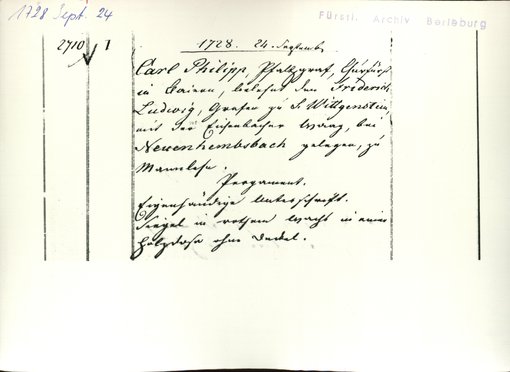 1728 Sept. 24
Fürstl. Archiv Berleburg
2710 I
1728. 24. Septembr
Carl Philipp, Pfalzgraf, Churfürst
in Baiern, belehnt den Friderich
Ludwig, Grafen zu S. Wittgenstein,
mit der Eisenbacher Waag, bei
Neuenhembsbach gelegen, zu
Mannlehn.
Pergament.
Eigenhändige Unterschrift.
Siegel in rothem Wachs in einer
Holzdose ohne Deckel.